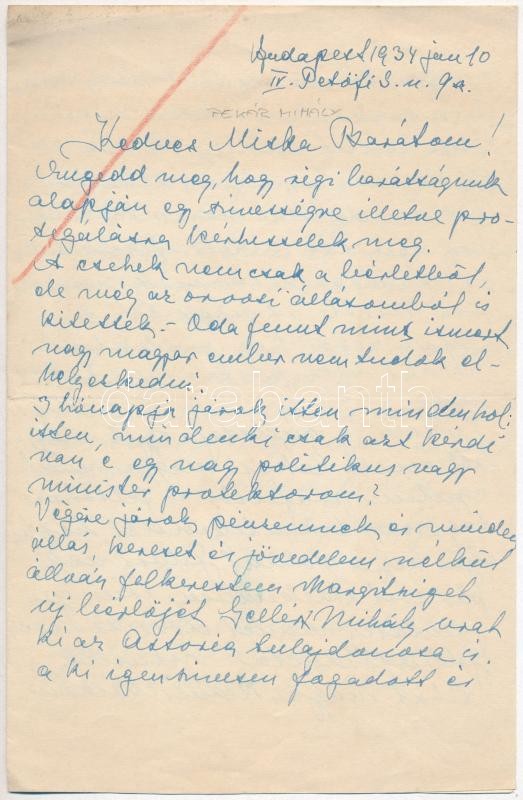 Budapest 1934 jun 10
IV. Petőfi S. u. 9a.
PEKÁR MIHÁLY
Kedves Miska Barátom!
Engedd meg, hogy régi barátságunk
alapján egy szivességre illetve pro-
tegálásra kérhesselek meg.
A csehek nemcsak a bérletből,
de még az orvosi állásomból is
kitettek. - Oda fennt mint ismert
nagy magyar ember nem tudok el-
helyezkedni.
3 hónapja járok itten mindenhol
itten, mindenki csak azt kérdi
van e egy nagy politikus vagy
minister protektorom?
Végére járok pénzemnek és minden
állás, kereset és jövedelem nélkül
állván felkerestem Margitsziget
új bérlőjét Gellért Mihály urat
ki az Astoria tulajdonosa is.
a ki igen szivesen fogadott és
darabanth